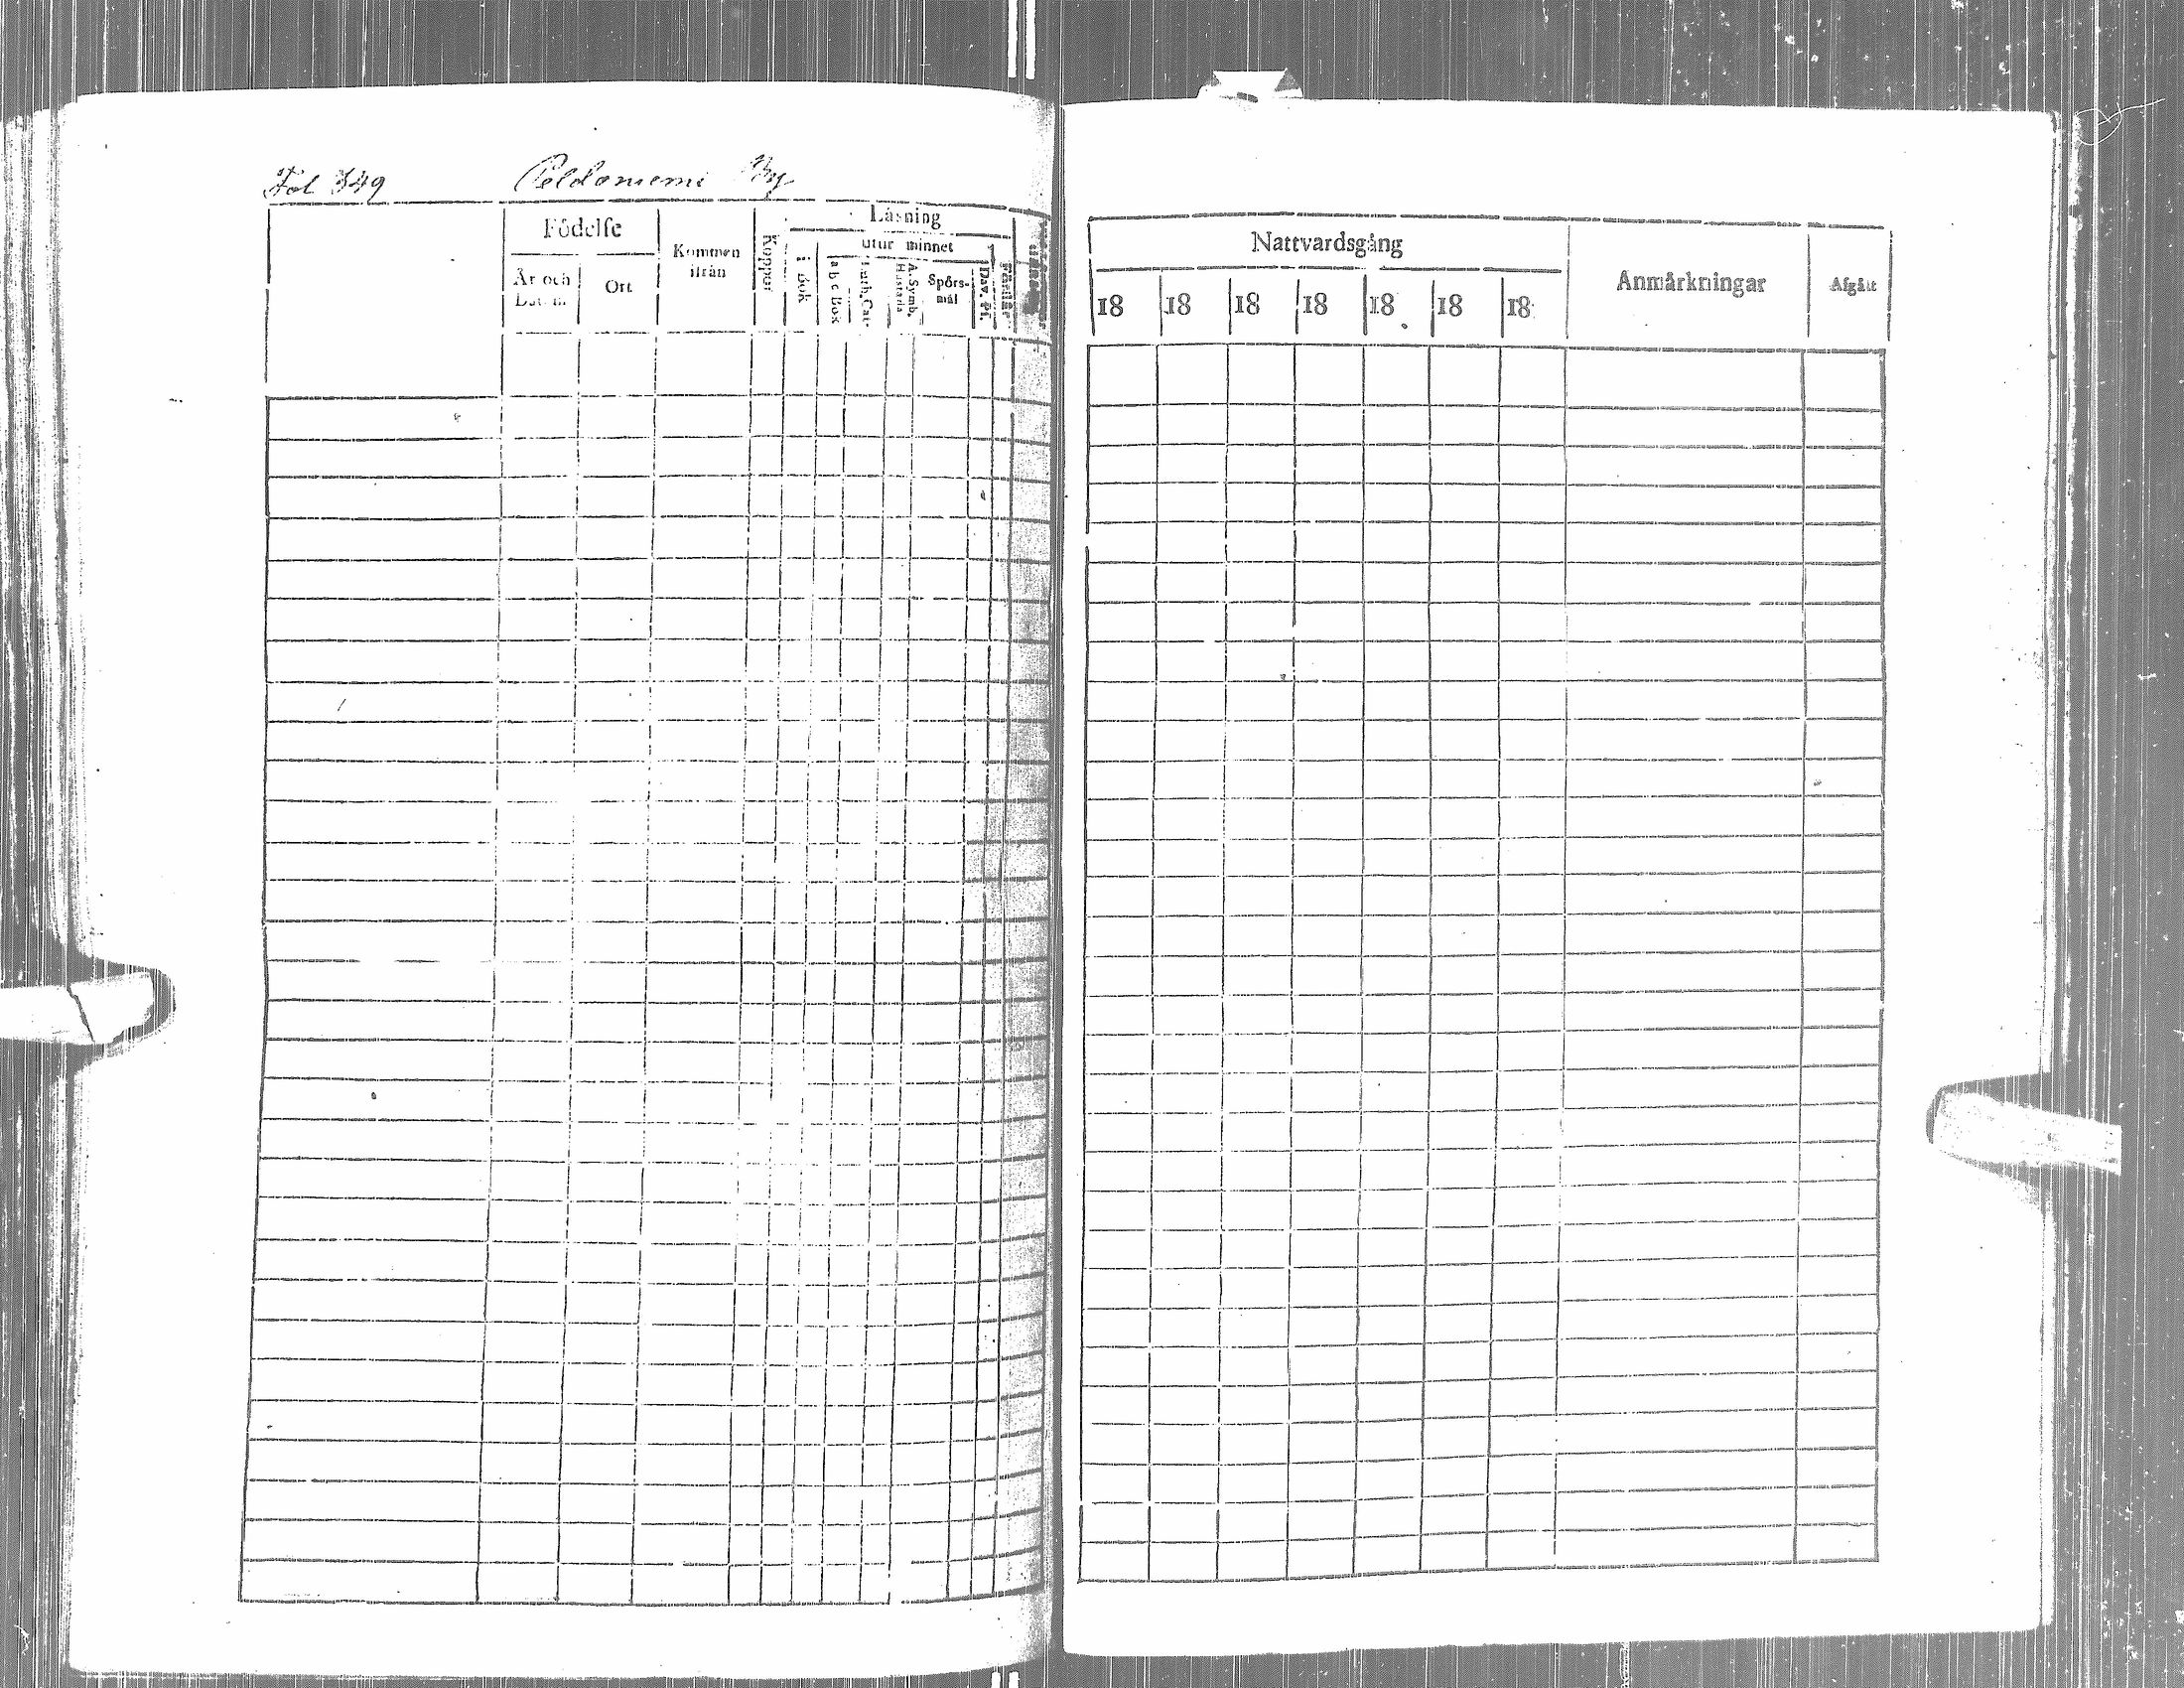 Fol 349 Peldoniemi By
Födelse
Kommen ifrån
Koppor
Läsning
utur minnet
År och Datum
Ort
i Bok
a b c Bok
Luth. Cat.
A. Symb. Hustafla
Spörs-
mål
Dav. Ps.
Nattvardsgång
Anmärkningar
Afgått
18 18 18 18 18 18 18